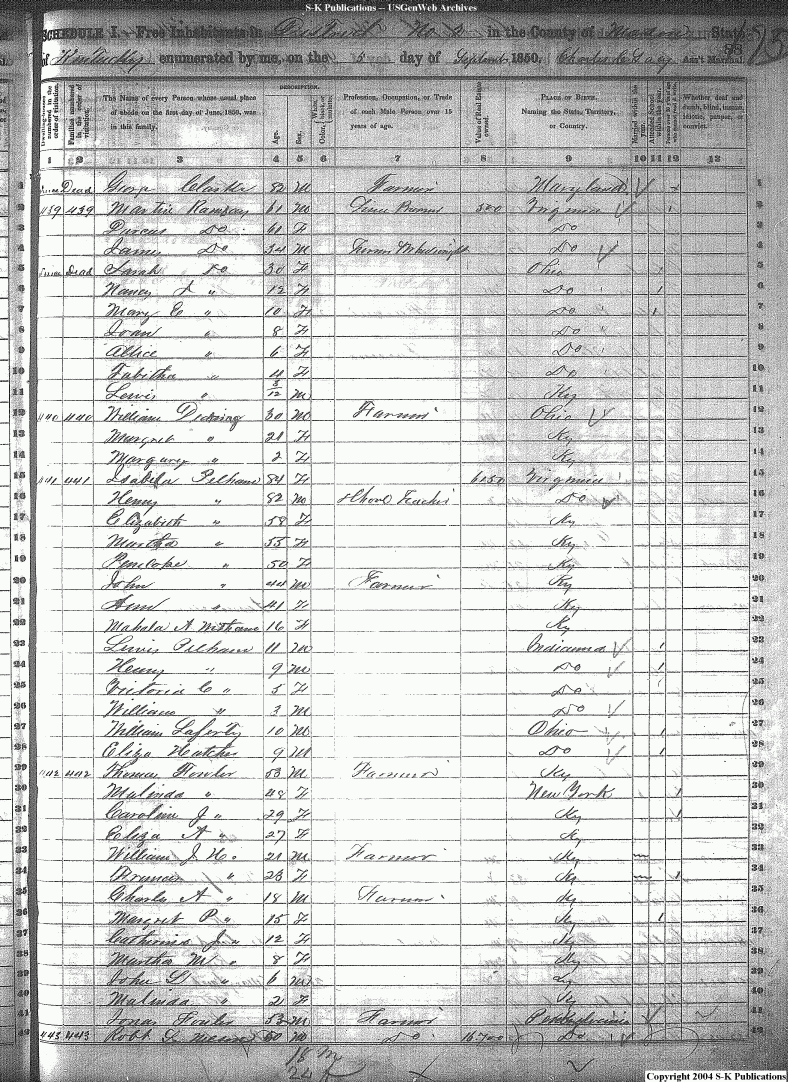 S-K Publications -- USGenWeb Archives
SCHEDULE I.—Free Inhabitants in District No 2 in the County of Mason State
of Kentucky enumerated by me, on the 5 day of Septemb. 1850. Charles C Ass't Marshal.
88
Dwelling-houses numbered in the order of visitation.
Families numbered in the order of visitation.
The Name of every Person whose usual place of abode on the first day of June, 1850, was in this family.
DESCRIPTION.
Age.
Sex.
Color, White, black, or mulatto.
Profession, Occupation, or Trade of each Male Person over 15 years of age.
Value of Real Estate owned.
PLACE OF BIRTH. Naming the State, Territory, or Country.
Married within the year.
Attended School within the year.
Persons over 20 y'rs of age who cannot read & write.
Whether deaf and dumb, blind, insane, idiotic, pauper, or convict.
1 2 3 4 5 6 7 8 9 10 11 12 13
1 Dead 82 M Farmer Maryland 1
2 439 439 Martin Ramsay 61 M 500 Virginia 2
3 Dorcus Do 61 F Do 3
4 James Do 34 M Do 4
5 Dead Sarah Do 30 F Ohio 1 5
6 Nancy J " 12 F Do 1 6
7 Mary E " 10 F Do 1 7
8 Joan " 8 F Do 8
9 Allice " 6 F Do 9
10 Tabitha " 4 F Do 10
11 Lewis " 3/12 M Ky 11
12 440 440 William 30 M Farmer Ohio 12
13 Margret " 21 F Ky 13
14 " 2 F Ky 14
15 441 441 Isabella Pelham 84 F Virginia 15
16 Henry " 82 M School Teacher Do 16
17 Elizabeth " 58 F Ky 17
18 Martha " 55 F Ky 18
19 Penelope " 50 F Ky 19
20 John " 44 M Farmer Ky 20
21 Ann " 41 F Ky 21
22 Mahala A 16 F Ky 22
23 Lewis Pelham 11 M Indianna 1 23
24 Henry " 9 M Do 1 24
25 Victoria C " 5 F Do 25
26 William " 3 M Do 26
27 William Laferty 10 M Ohio 1 27
28 Eliza 9 M Do 1 28
29 442 442 Thomas Fowler 53 M Farmer Ky 29
30 Malinda " 48 F New York 1 30
31 Caroline J " 29 F Ky 1 31
32 Eliza A " 27 F Ky 32
33 William J H. 21 M Farmer Ky 33
34 " 23 F Ky 1 34
35 Charls A " 18 M Farmer Ky 35
36 Margret P " 15 F Ky 1 36
37 Catherine J " 12 F Ky 37
38 Martha M " 8 F Ky 38
39 John " 6 M Ky 39
40 Malinda " 2 F Ky 40
41 Jonas Fowler 53 M Farmer Pennsylvania 41
42 443 443 Robt 60 M Do 16700 Do 42
18 M
24 F
Copyright 2004 S-K Publications